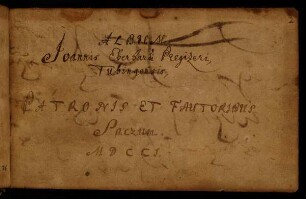 ALBUM
Joannis Eberhardi Pregizeri
Tubingensis
PATRONIS ET FAUTORIBUS
Sacrum.
MDCCI.